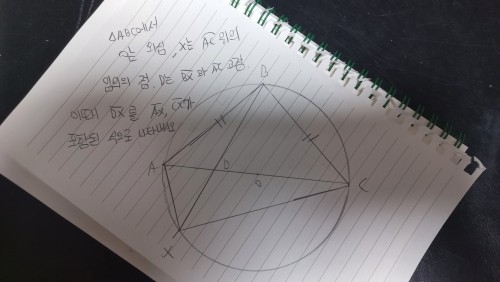 △ABC에서
O는 외심, X는 AC 위의
임의의 점, D는 BX와 AC 교점
이때 DX를 AX, CX가
포함된 식으로 나타내세요
B
A
D
O
C
X